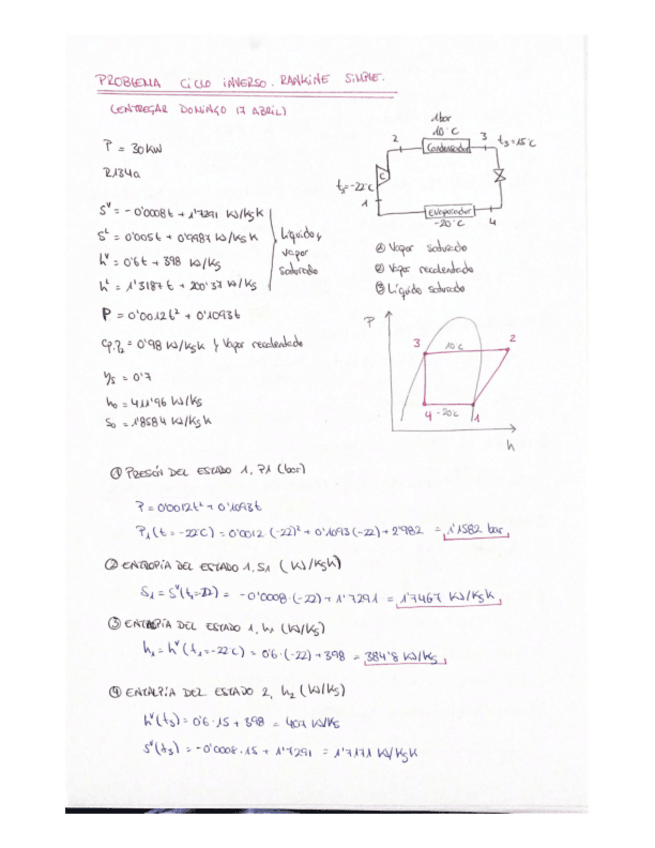 PROBLEMA CICLO INVERSO. RANKINE SIMPLE.
(ENTREGAR DOMINGO 17 ABRIL)
P = 30 KW
R134a
1bar
10°C
Condensador
2
3
t₃=15°C
C
t₅=-22°C
1
Evaporador
-20°C
4
S^v = -0'0008t + 1'7291 KJ/KgK
S^L = 0'005t + 0'9987 KJ/KgK
h^v = 0'6t + 398 KJ/Kg
h^L = 1'3187t + 200'37 KJ/Kg
Líquido y
vapor
saturado
① Vapor saturado
② Vapor recalentado
③ Líquido saturado
P = 0'0012t² + 0'1093t
Cp. = 0'98 KJ/KgK } Vapor recalentado
ηs = 0'7
h₀ = 411'96 KJ/Kg
S₀ = 1'8584 KJ/KgK
P
3
10 c
2
4
-20c
1
h
① PRESIÓN DEL ESTADO 1, P1 (bar)
P = 0'0012t² + 0'1093t
P₁(t = -22°C) = 0'0012 (-22)² + 0'1093 (-22) + 2'982 = 1'1582 bar
② ENTROPÍA DEL ESTADO 1, S1 (KJ/KgK)
S₁ = S^v(t₁=-22) = -0'0008·(-22) + 1'7291 = 1'7467 KJ/KgK
③ ENTALPÍA DEL ESTADO 1, h₁ (KJ/Kg)
h₁ = h^v(t₁=-22°C) = 0'6·(-22) + 398 = 384'8 KJ/Kg
④ ENTALPÍA DEL ESTADO 2, h₂ (KJ/Kg)
h^v(t₃) = 0'6·15 + 398 = 407 KJ/KG
S^v(t₃) = -0'0008·15 + 1'7291 = 1'7171 KJ/KgK